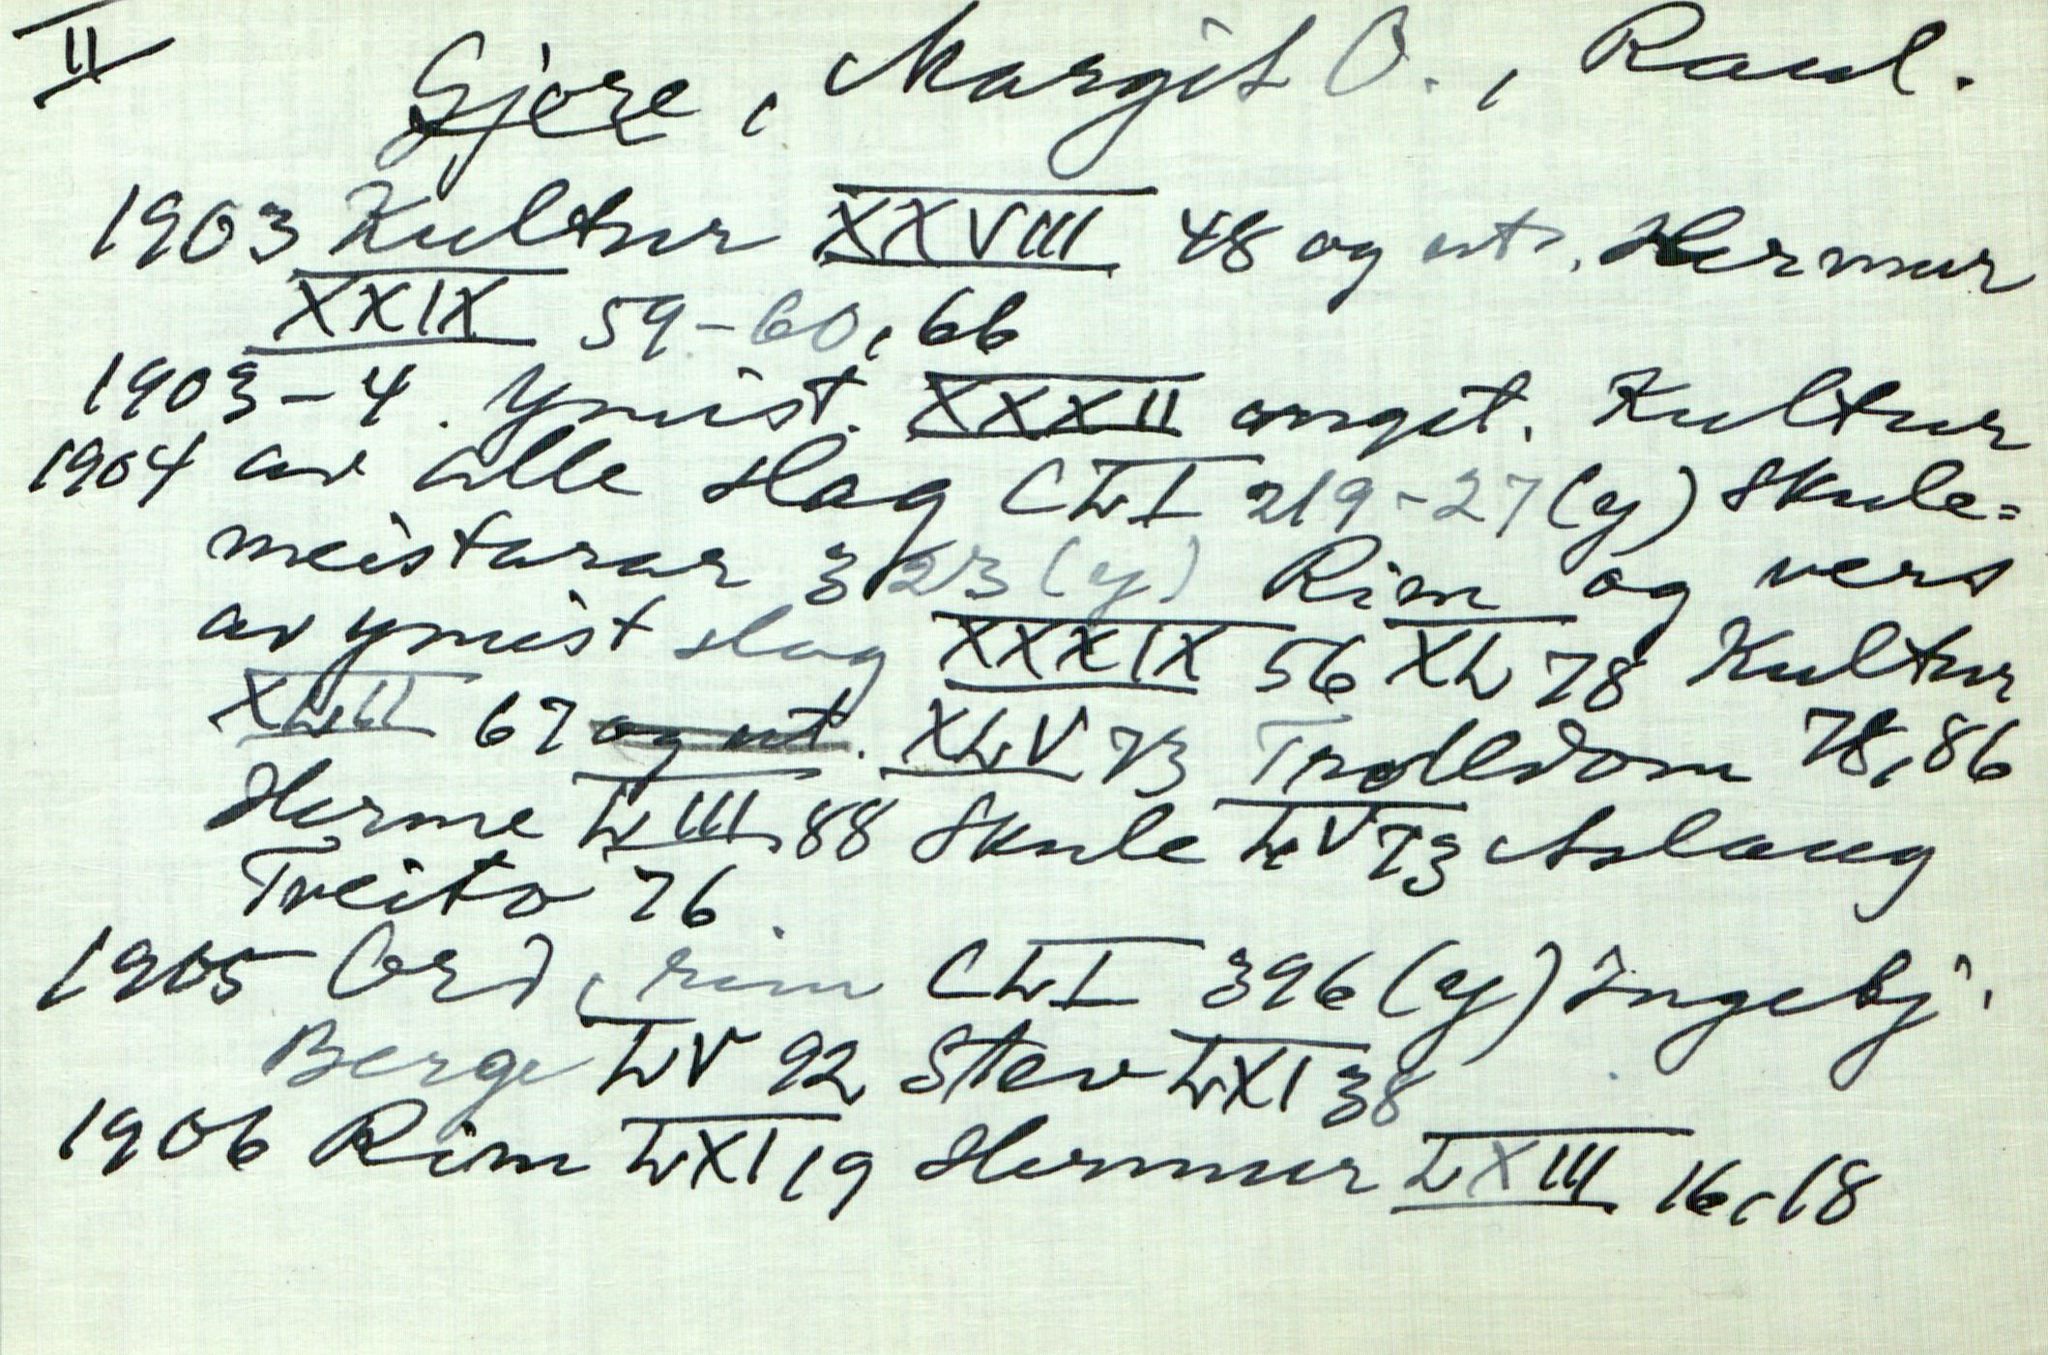 II
Gjore, Margit O., Raul.
1903 Kultur XXVIII 48 og ut, Hermur
XXIX 59-60, 66
1903-4. Ymist. XXXII Kultur
1904 av alle slag CLI 219-27 (y) Skule=
meistarar 323 (y) Rim og vers
av ymist slag XXXIX 56 XL 78 Kultur
XLIII 67 og ut. XLV 73 Trolldom 78, 86
Herme LIII 88 Skule LV 73 Aslaug
Treito 76.
1905 Ord, rim CLI 396 (y) Ingebj.
Berge LV 92 Stev LXI 38
1906 Rim LXI 19 Hermur LXIII 16, 18